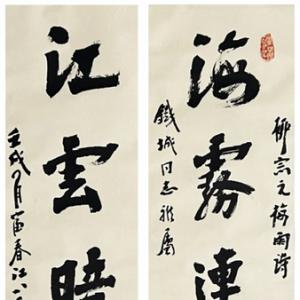 柳宗元梅雨詩
海霧連
鐵城同志雅屬
江雲暗
壬戌月富春江八